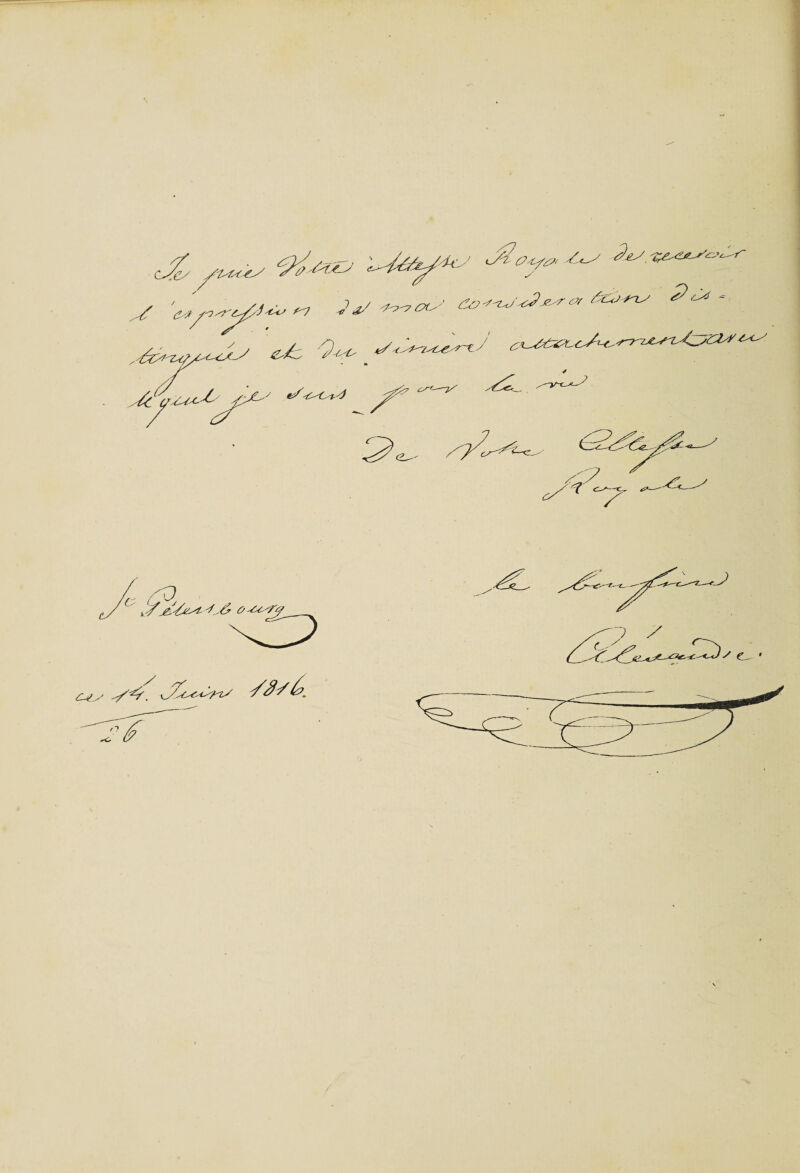 Je prie Votre Altesse Royale de recevoir
l'expression de ma consideration dis=
tinguée et du sincère attachement avec
lequel je suis pour la vie
De Votre Altesse
Royale
le bon frère
Aléxandre.
St Pétersbourg
ce 14. Juin 1816.
26